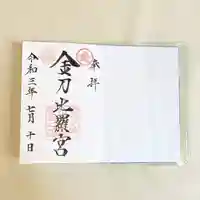 奉拝
金刀比羅宮
令和三年七月十日